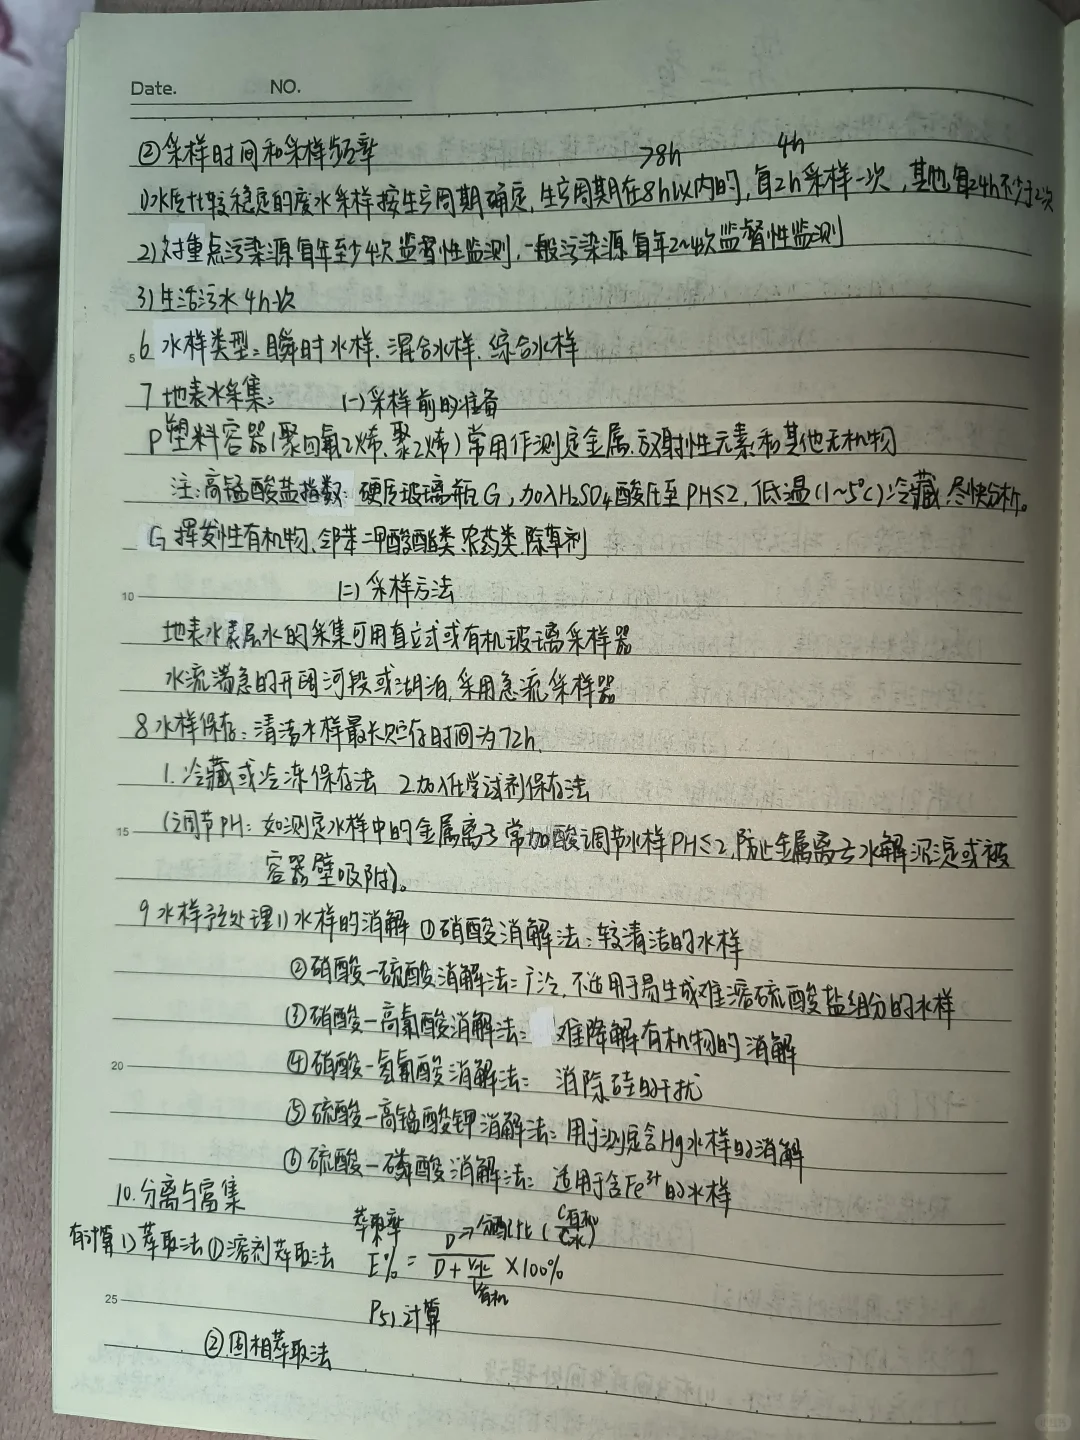 Date. NO.
②采样时间和采样频率
>8h 4h
1)水质比较稳定的废水采样按生产周期确定,生产周期在8h以内的,每2h采样一次,其他每24h不少于2次
2)对重点污染源每年至少4次监督性监测,一般污染源每年2~4次监督性监测
3)生活污水4h一次
5
6 水样类型:瞬时水样、混合水样、综合水样
7 地表水采集: (一)采样前的准备
P塑料容器(聚四氟乙烯、聚乙烯)常用作测定金属、放射性元素和其他无机物
注:高锰酸盐指数:硬质玻璃瓶G,加入H₂SO₄酸化至PH≤2,低温(1~5℃)冷藏 尽快分析。
G 挥发性有机物、邻苯二甲酸酯类、农药类、除草剂
10
(二)采样方法
地表水表层水的采集可用直立式或有机玻璃采样器
水流湍急的开阔河段或湖泊,采用急流采样器
8 水样保存:清洁水样最长贮存时间为72h.
1.冷藏或冷冻保存法 2.加入化学试剂保存法
15
(调节PH:如测定水样中的金属离子常加酸调节水样PH≤2,防止金属离子水解沉淀或被
容器壁吸附)。
9 水样预处理 1)水样的消解 ①硝酸消解法:较清洁的水样
②硝酸-硫酸消解法:广泛,不适用于易生成难溶硫酸盐组分的水样
③硝酸-高氯酸消解法: 难降解有机物的消解
20
④硝酸-氢氟酸消解法: 消除硅的干扰
⑤硫酸-高锰酸钾消解法:用于测定含Hg水样的消解
⑥硫酸-磷酸消解法: 适用于含Fe³⁺的水样
10.分离与富集
萃取率 D→分配比(C有机/C水)
有计算 1)萃取法 ①溶剂萃取法 E% = D/(D+V水/V有机) ×100%
25
P51计算
②固相萃取法